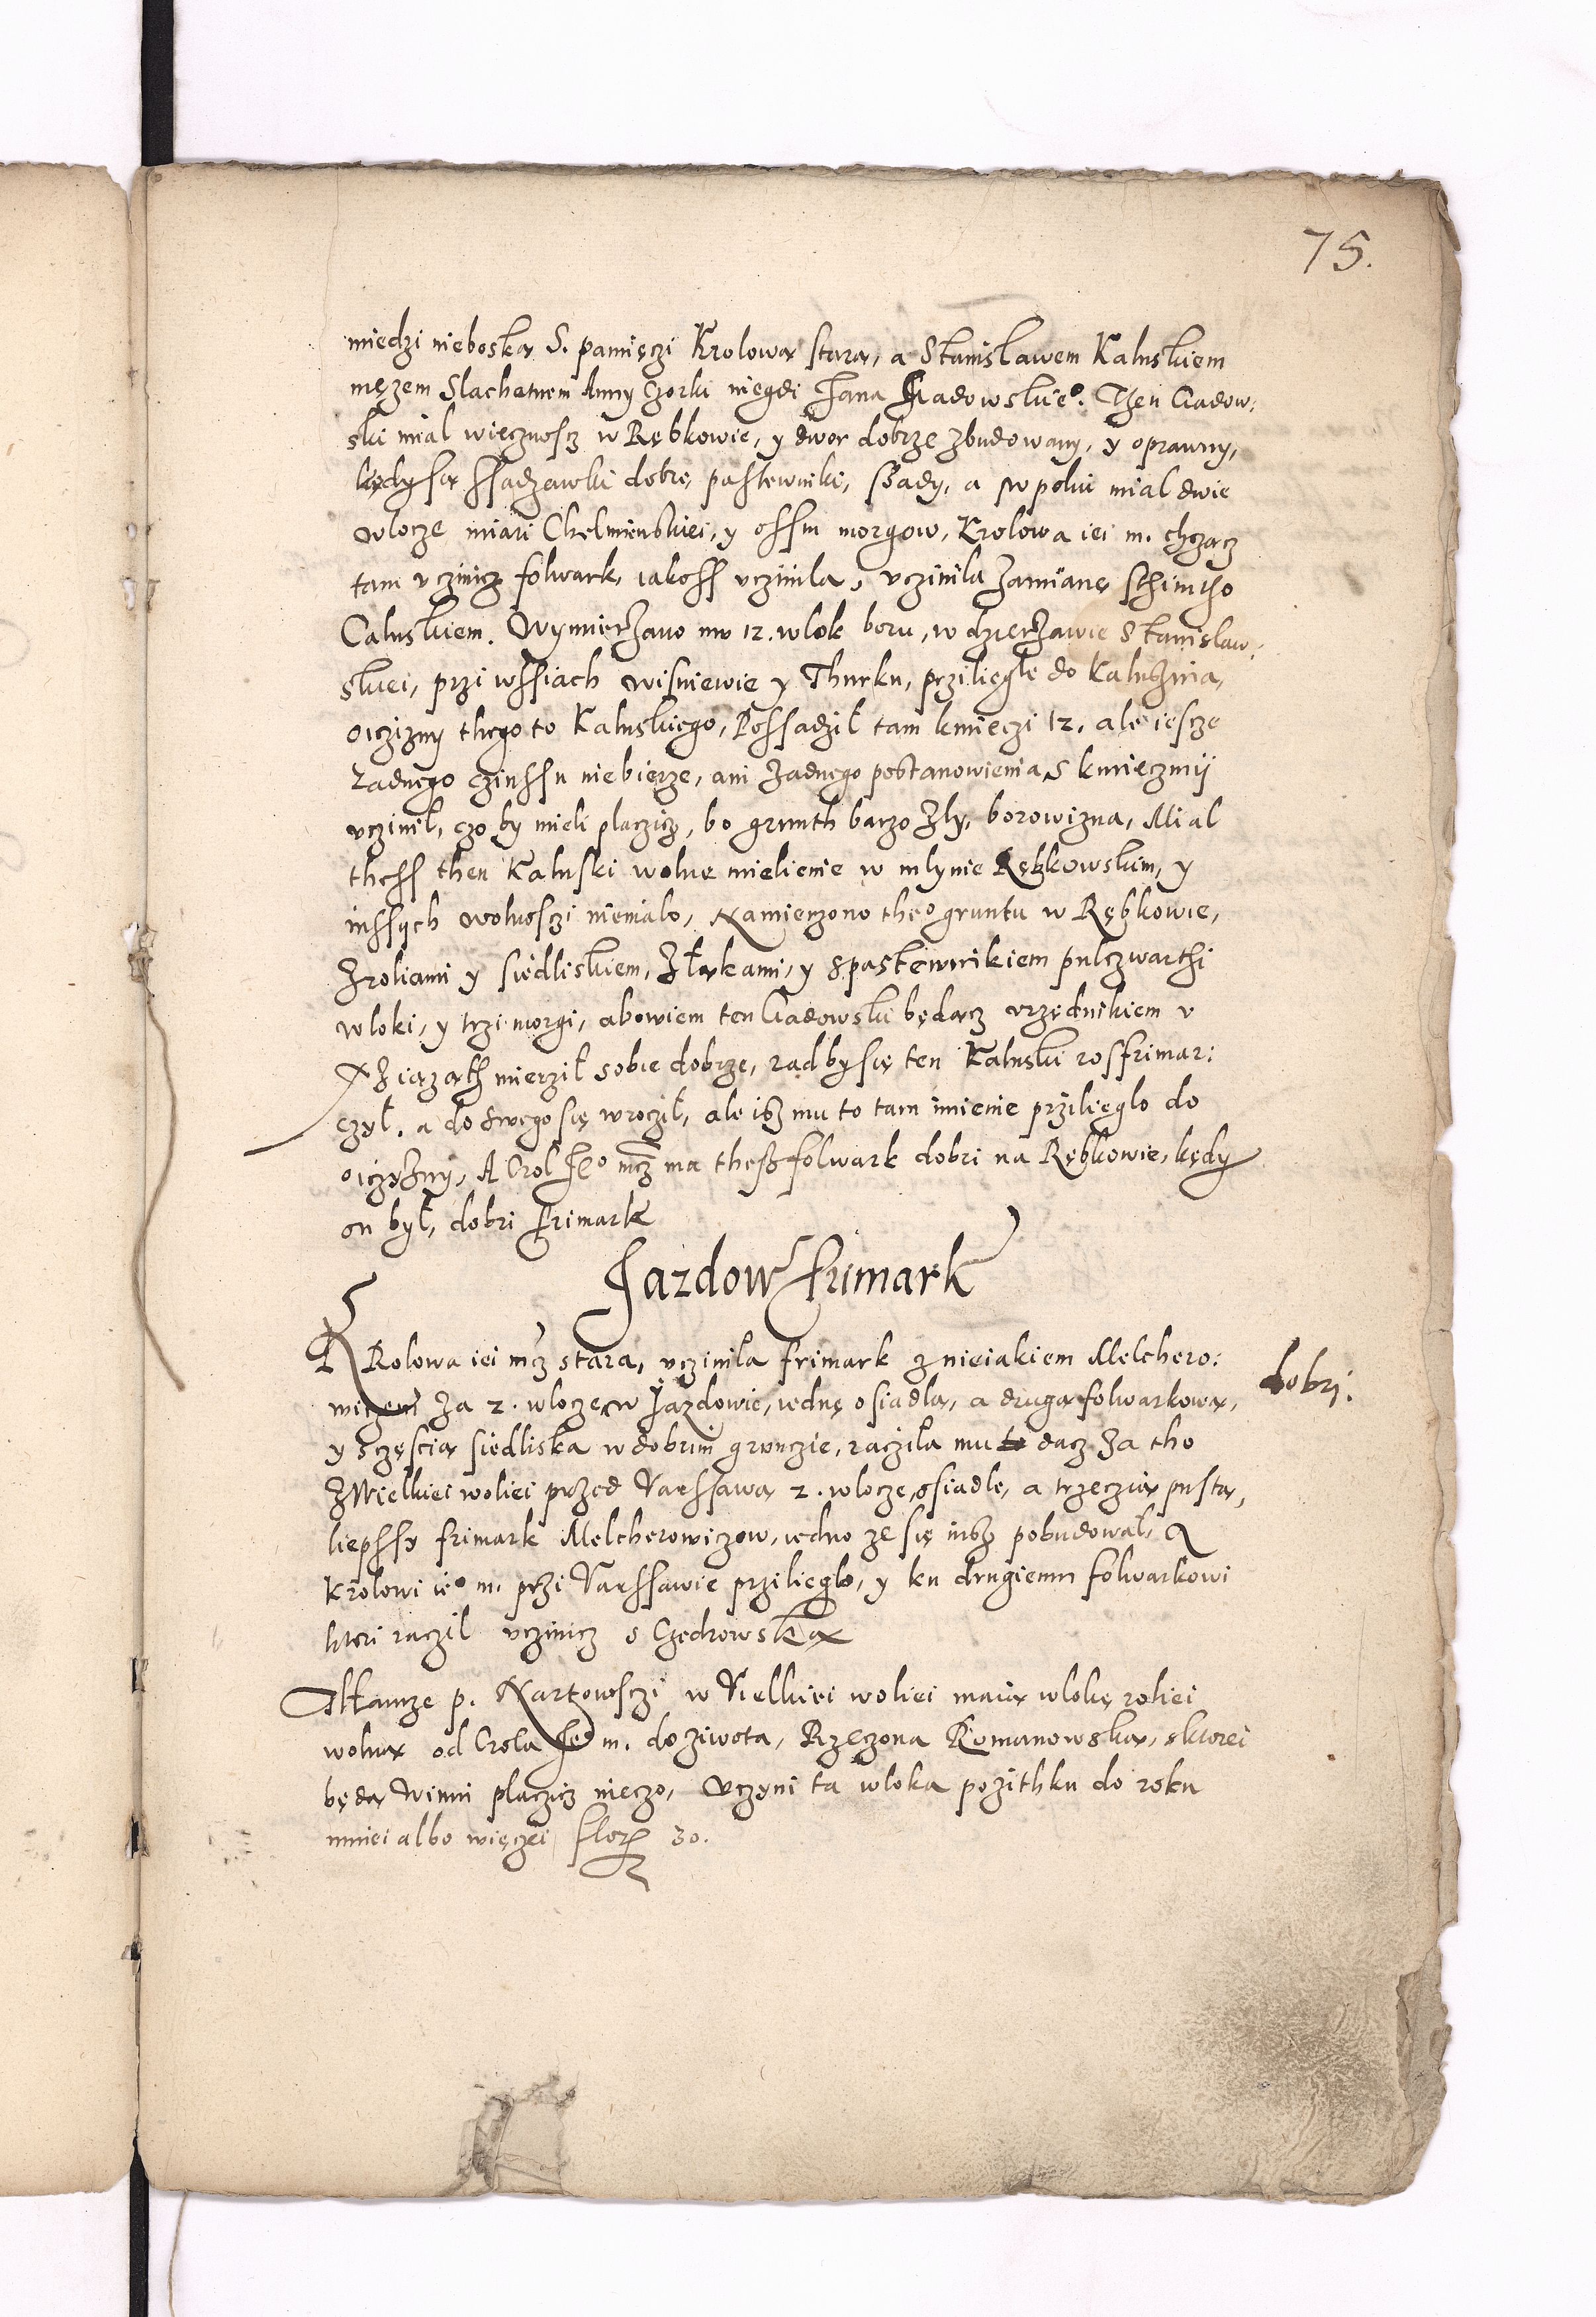 75.
miedzi nieboską S. pamięczi Krolową starą, a Stanislawem Kaluskiem
męzem Slachetnem Anny czorki niegdi Jana Gadowskieo. Then Gadow:
ski mial wiecznoscz w Rębkowie, y dwor dobrze zbudowany, y oprawny,
kędy są ssadzawki dobre, pastewniki, sady, a w poliu mial dwie
wlocze miari Chelmienskiei, y ossm morgow, Krolowa iei m. chczącz
tam uczinicz folwark, iakoss uczinila, uczinila zamianę sthimtho
Caluskiem. Wymierzano mu 12. wlok boru, w dzierzawie Stanislaw:
skiei, przi wssiach Wisniewie y Thurku, przilięgłe do Kaluszina,
oiczizny thego to Kaluskiego, Possadził tam kmieczi 12. ale iescze
zadnego czinssu niebierze, ani zadnego postanowienia s kmieczmij
uczinil, czo by mieli placzicz, bo grunth barzo zły, borowizna, Mial
thess then Kaluski wolne mielienie w mlynie Rębkowskim, y
inssych wolnosczi niemalo, Namierzono theo gruntu w Rębkowie,
z roliami y siedliskiem, z łąkami, y s pastewnikiem pulczwarthi
wloki, y trzi morgi, abowiem ten Gadowski będącz urzędnikiem u
Xziązath mierził sobie dobrze, rad by się ten Kaluski rosfrimar:
czył. a do swego się wrocził, ale isz mu to tam imienie przilięglo do
oiczyzny, A Crol Jeo mcz ma thesz folwark dobri na Rębkowie, kędy
on był, dobri frimark
Jazdow frimark
KRolowa iei mcz stara, uczinila frimark z nieiakiem Melchero:
wiczem za 2. wlocze w Jazdowie, iednę osiadlą, a drugą folwarkową,
y sczęscią siedliska w dobrim grunczie, raczila mu dacz za tho
z Wielkiei woliei przed Varssawą 2. wlocze osiadle, a trzeczią pustą,
liepssy frimark Melcherowiczow, iedno ze się iusz pobudowal, a
Krolowi ieo m. przi Varssawie przilięglo, y ku drugiemu folwarkowi
ktori raczil uczinicz s Czechowską
dobri:
Thamze p. Nartowsczi w Vielkiei woliei maią wlokę roliei
wolną od Crola Jeo m. do ziwota, Rzeczona Romanowską, sktorei
będą winni placzicz nieczo, Uczyni ta wloka pozithku do roku
mniei albo więczei flor 30.